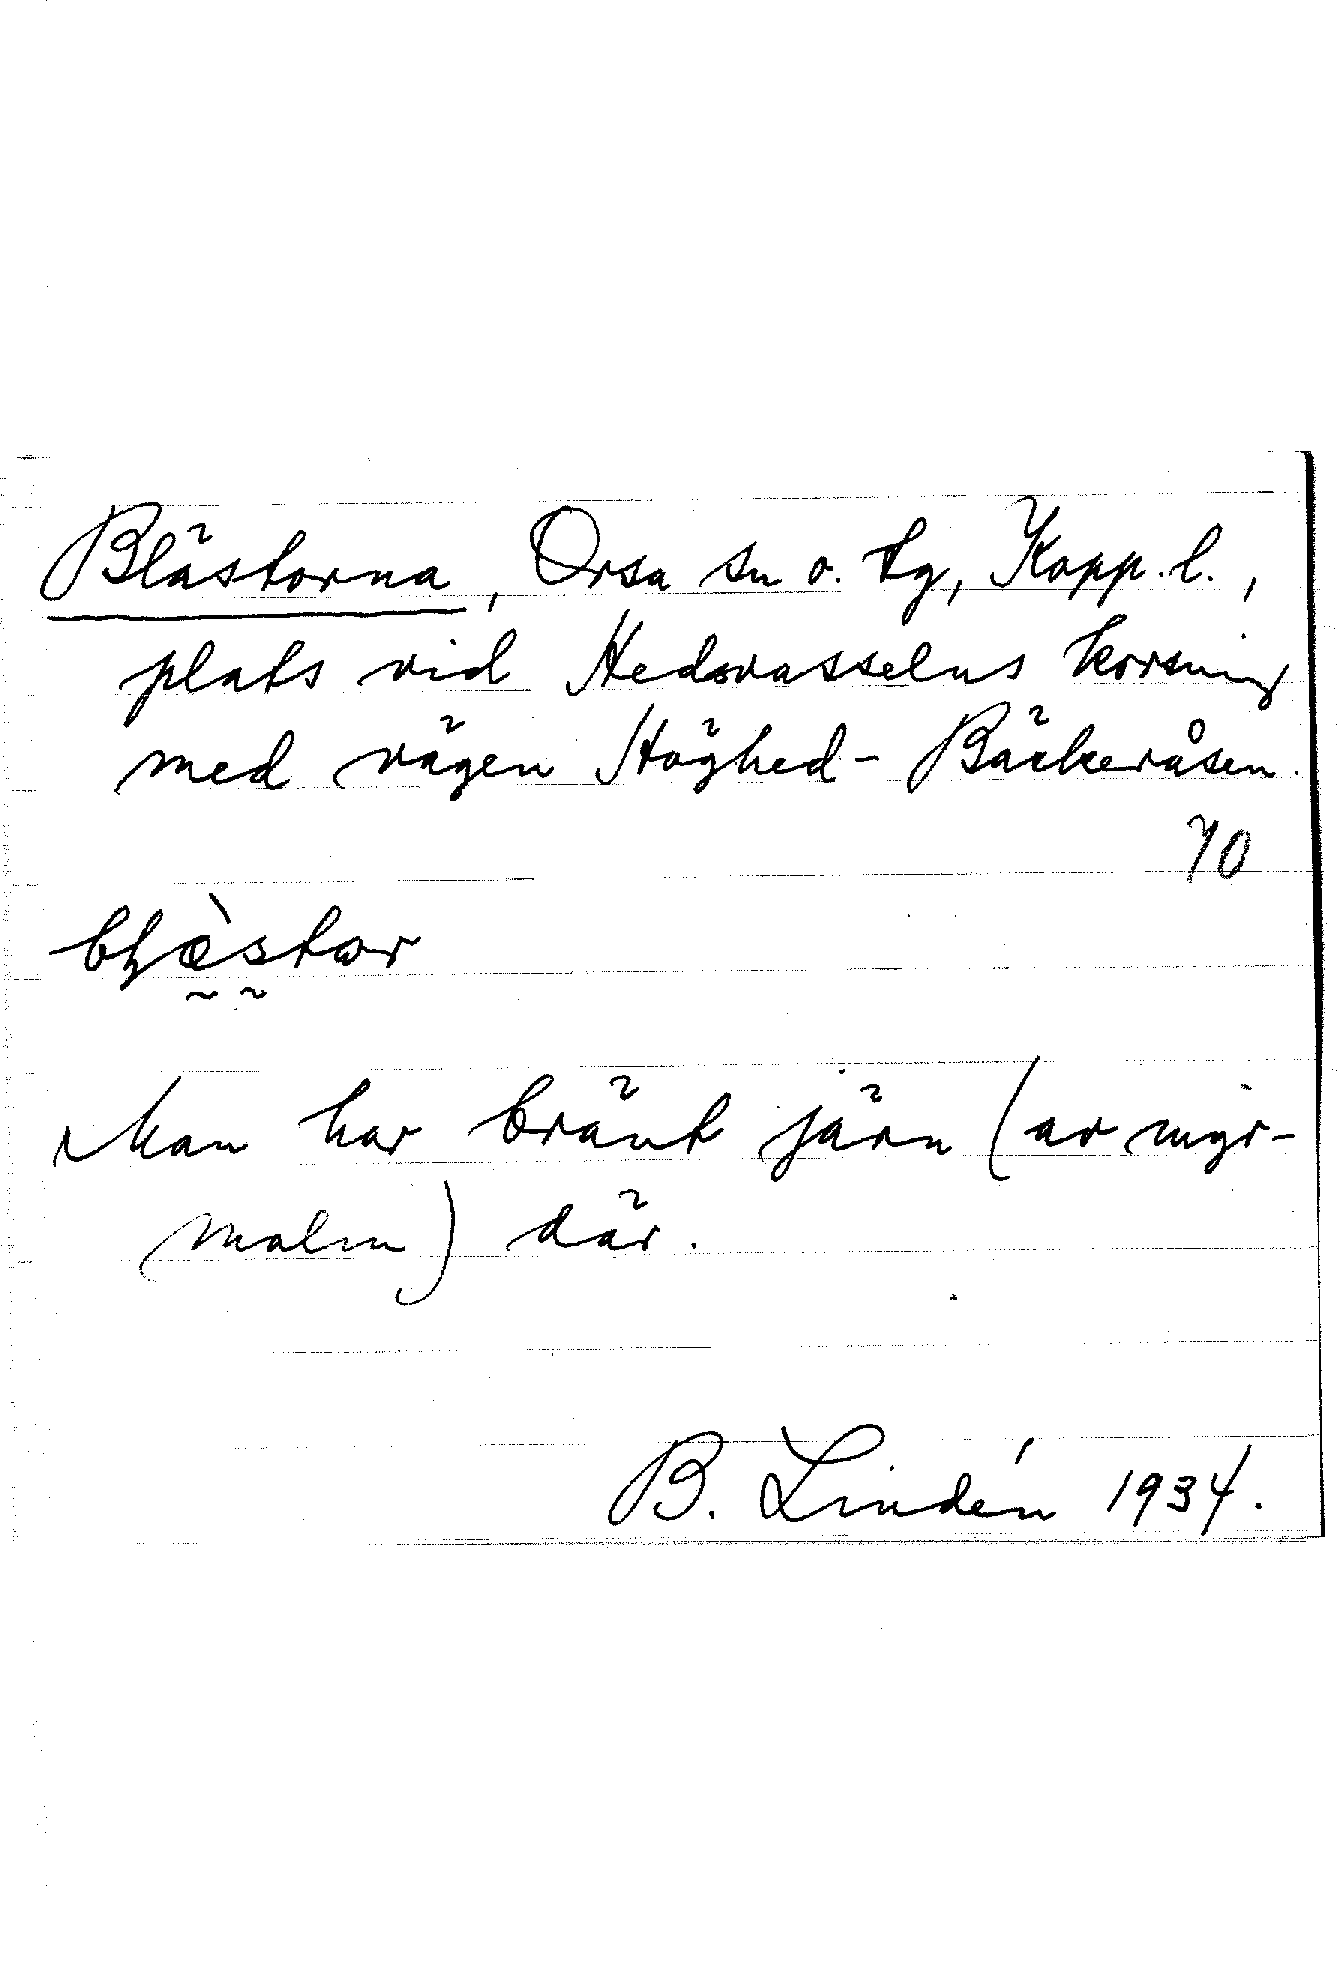 Blästorna, Orsa sn o. tg, Kopp. l.,
plats vid Hedsvasselns korsning
med vägen Höghed - Bäckeråsen.
70
Man har bränt järn (av myr-
malm) där.
B. Lindén 1934.